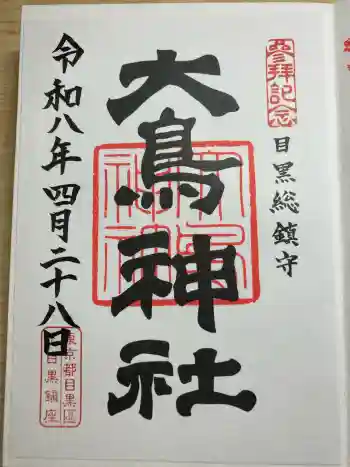 参拝記念
目黒総鎮守
大鳥神社
令和八年四月二十八日
東京都目黒区
目黒鎮座